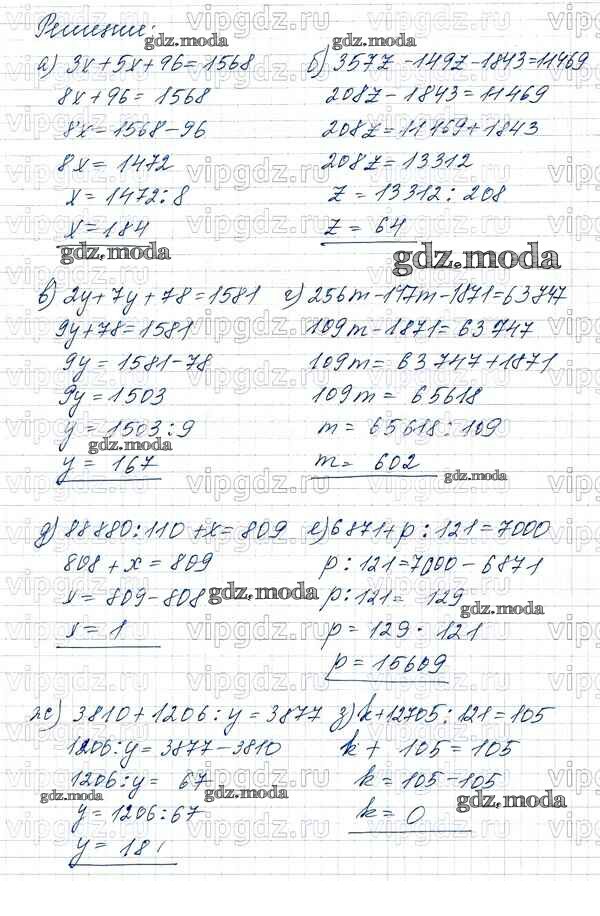 Решение:
а) 3x + 5x + 96 = 1568
8x + 96 = 1568
8x = 1568 - 96
8x = 1472
x = 1472 : 8
x = 184
б) 357z - 149z - 1843 = 11469
208z - 1843 = 11469
208z = 11469 + 1843
208z = 13312
z = 13312 : 208
z = 64
в) 2y + 7y + 78 = 1581
9y + 78 = 1581
9y = 1581 - 78
9y = 1503
y = 1503 : 9
y = 167
г) 256m - 147m - 1871 = 63747
109m - 1871 = 63747
109m = 63747 + 1871
109m = 65618
m = 65618 : 109
m = 602
д) 88880 : 110 + x = 809
808 + x = 809
x = 809 - 808
x = 1
е) 6871 + p : 121 = 7000
p : 121 = 7000 - 6871
p : 121 = 129
p = 129 · 121
p = 15609
ж) 3810 + 1206 : y = 3877
1206 : y = 3877 - 3810
1206 : y = 67
y = 1206 : 67
y = 18
з) k + 12705 : 121 = 105
k + 105 = 105
k = 105 - 105
k = 0
gdz.moda
vipgdz.ru